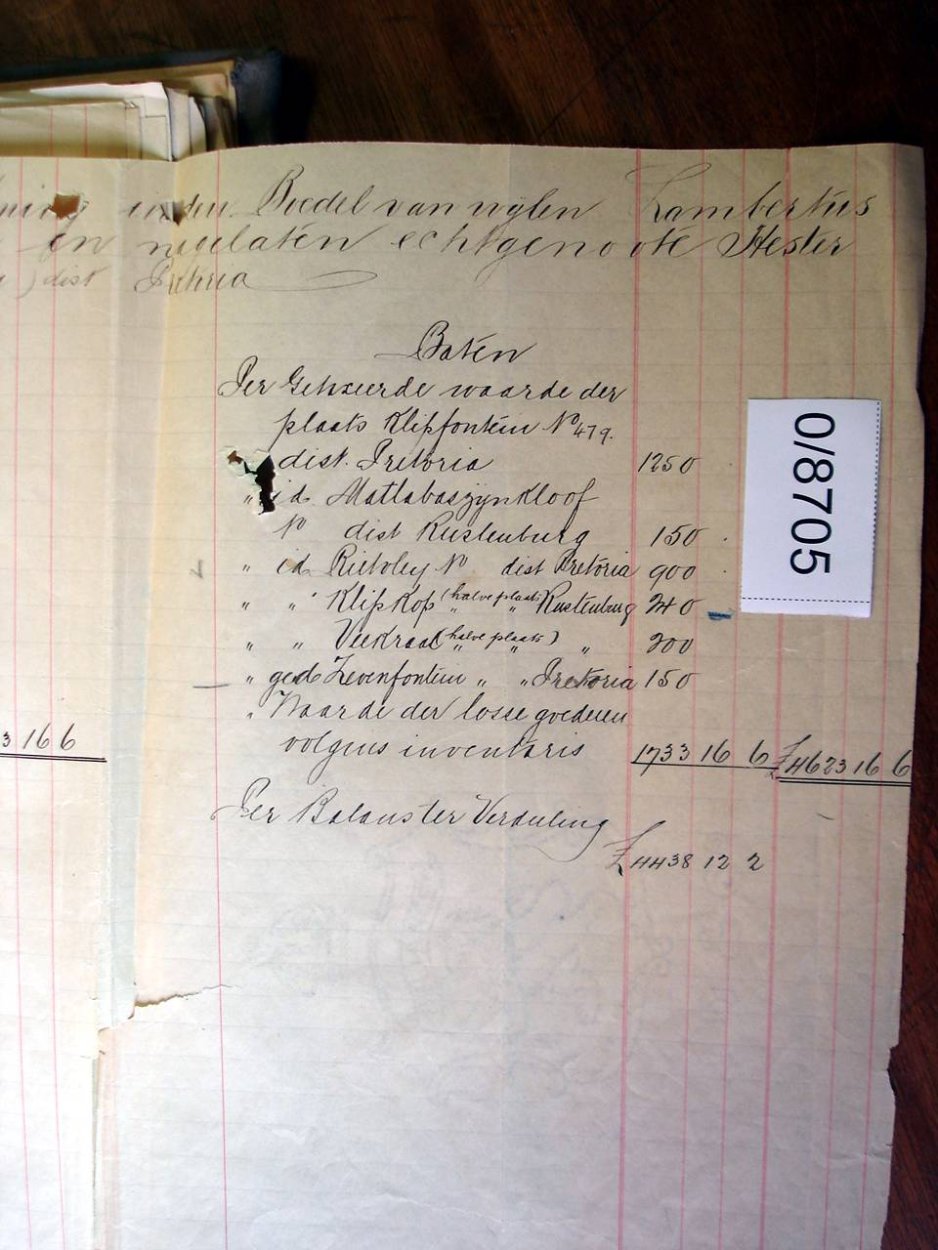 ning in den Boedel van wijlen Lambertus
en nagelaten echtgenoote Hester
) dist Pretoria
Baten
Per Getaxeerde waarde der
plaats Klipfontein No 479.
dist. Pretoria 1250
" id. Matlabaszynkloof
No dist Rustenburg 150
" id Rietvley No dist Pretoria 900
" " Klipkop (halve plaats) " Rustenburg 240
" " Veekraal (halve plaats) " 200
" ged. Zevenfontein " " Pretoria 150
" Waarde der losse goederen
volgens inventaris 1733 16 6 £4623 16 6
3 16 6
Per Balans ter Verdeeling
£4438 12 2
0/8705